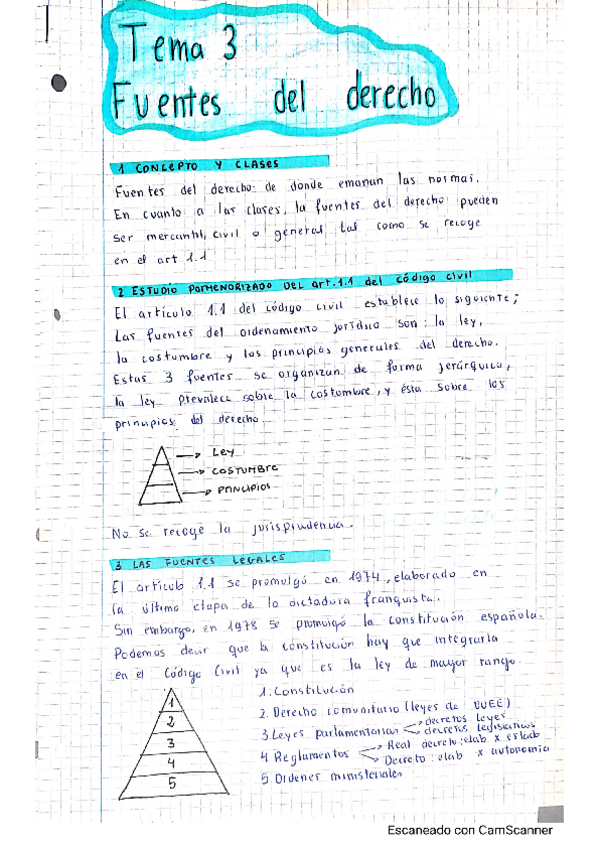 Tema 3
Fuentes del derecho
1 CONCEPTO Y CLASES
Fuentes del derecho: de donde emanan las normas.
En cuanto a las clases, la fuentes del derecho pueden
ser mercantil, civil o general tal como se recoge
en el art 1.1
2 ESTUDIO PORMENORIZADO DEL art. 1.1 del código civil
El artículo 1.1 del código civil establece lo siguiente;
Las fuentes del ordenamiento jurídico son: la ley,
la costumbre y los principios generales del derecho.
Estas 3 fuentes se organizan de forma jerárquica,
la ley prevalece sobre la costumbre, y ésta sobre los
principios del derecho.
LEY
COSTUMBRE
PRINCIPIOS
No se recoge la jurisprudencia.
3 LAS FUENTES LEGALES
El artículo 1.1 se promulgó en 1974, elaborado en
la última etapa de la dictadura franquista.
Sin embargo, en 1978 se promulgó la constitución española.
Podemos decir que la constitución hay que integrarla
en el Código Civil ya que es la ley de mayor rango.
1
2
3
4
5
1. Constitución
2. Derecho comunitario (leyes de UUEE)
3. Leyes parlamentarias decretos leyes
decretos legislativos
4 Reglamentos Real decreto: elab x estado
Decreto: elab x autonomía
5. Ordenes ministeriales
Escaneado con CamScanner